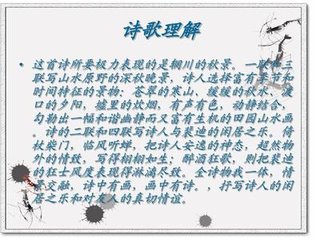 诗歌理解
• 这首诗所要极力表现的是辋川的秋景。一联和三
联写山水原野的深秋晚景,诗人选择富有季节和
时间特征的景物:苍翠的寒山、缓缓的秋水、渡
口的夕阳,墟里的炊烟,有声有色,动静结合,
勾勒出一幅和谐幽静而又富有生机的田园山水画
。诗的二联和四联写诗人与裴迪的闲居之乐。倚
杖柴门,临风听蝉,把诗人安逸的神态,超然物
外的情致,写得栩栩如生;醉酒狂歌,则把裴迪
的狂士风度表现得淋漓尽致。全诗物我一体,情
景交融,诗中有画,画中有诗。,抒写诗人的闲
居之乐和对友人的真切情谊。